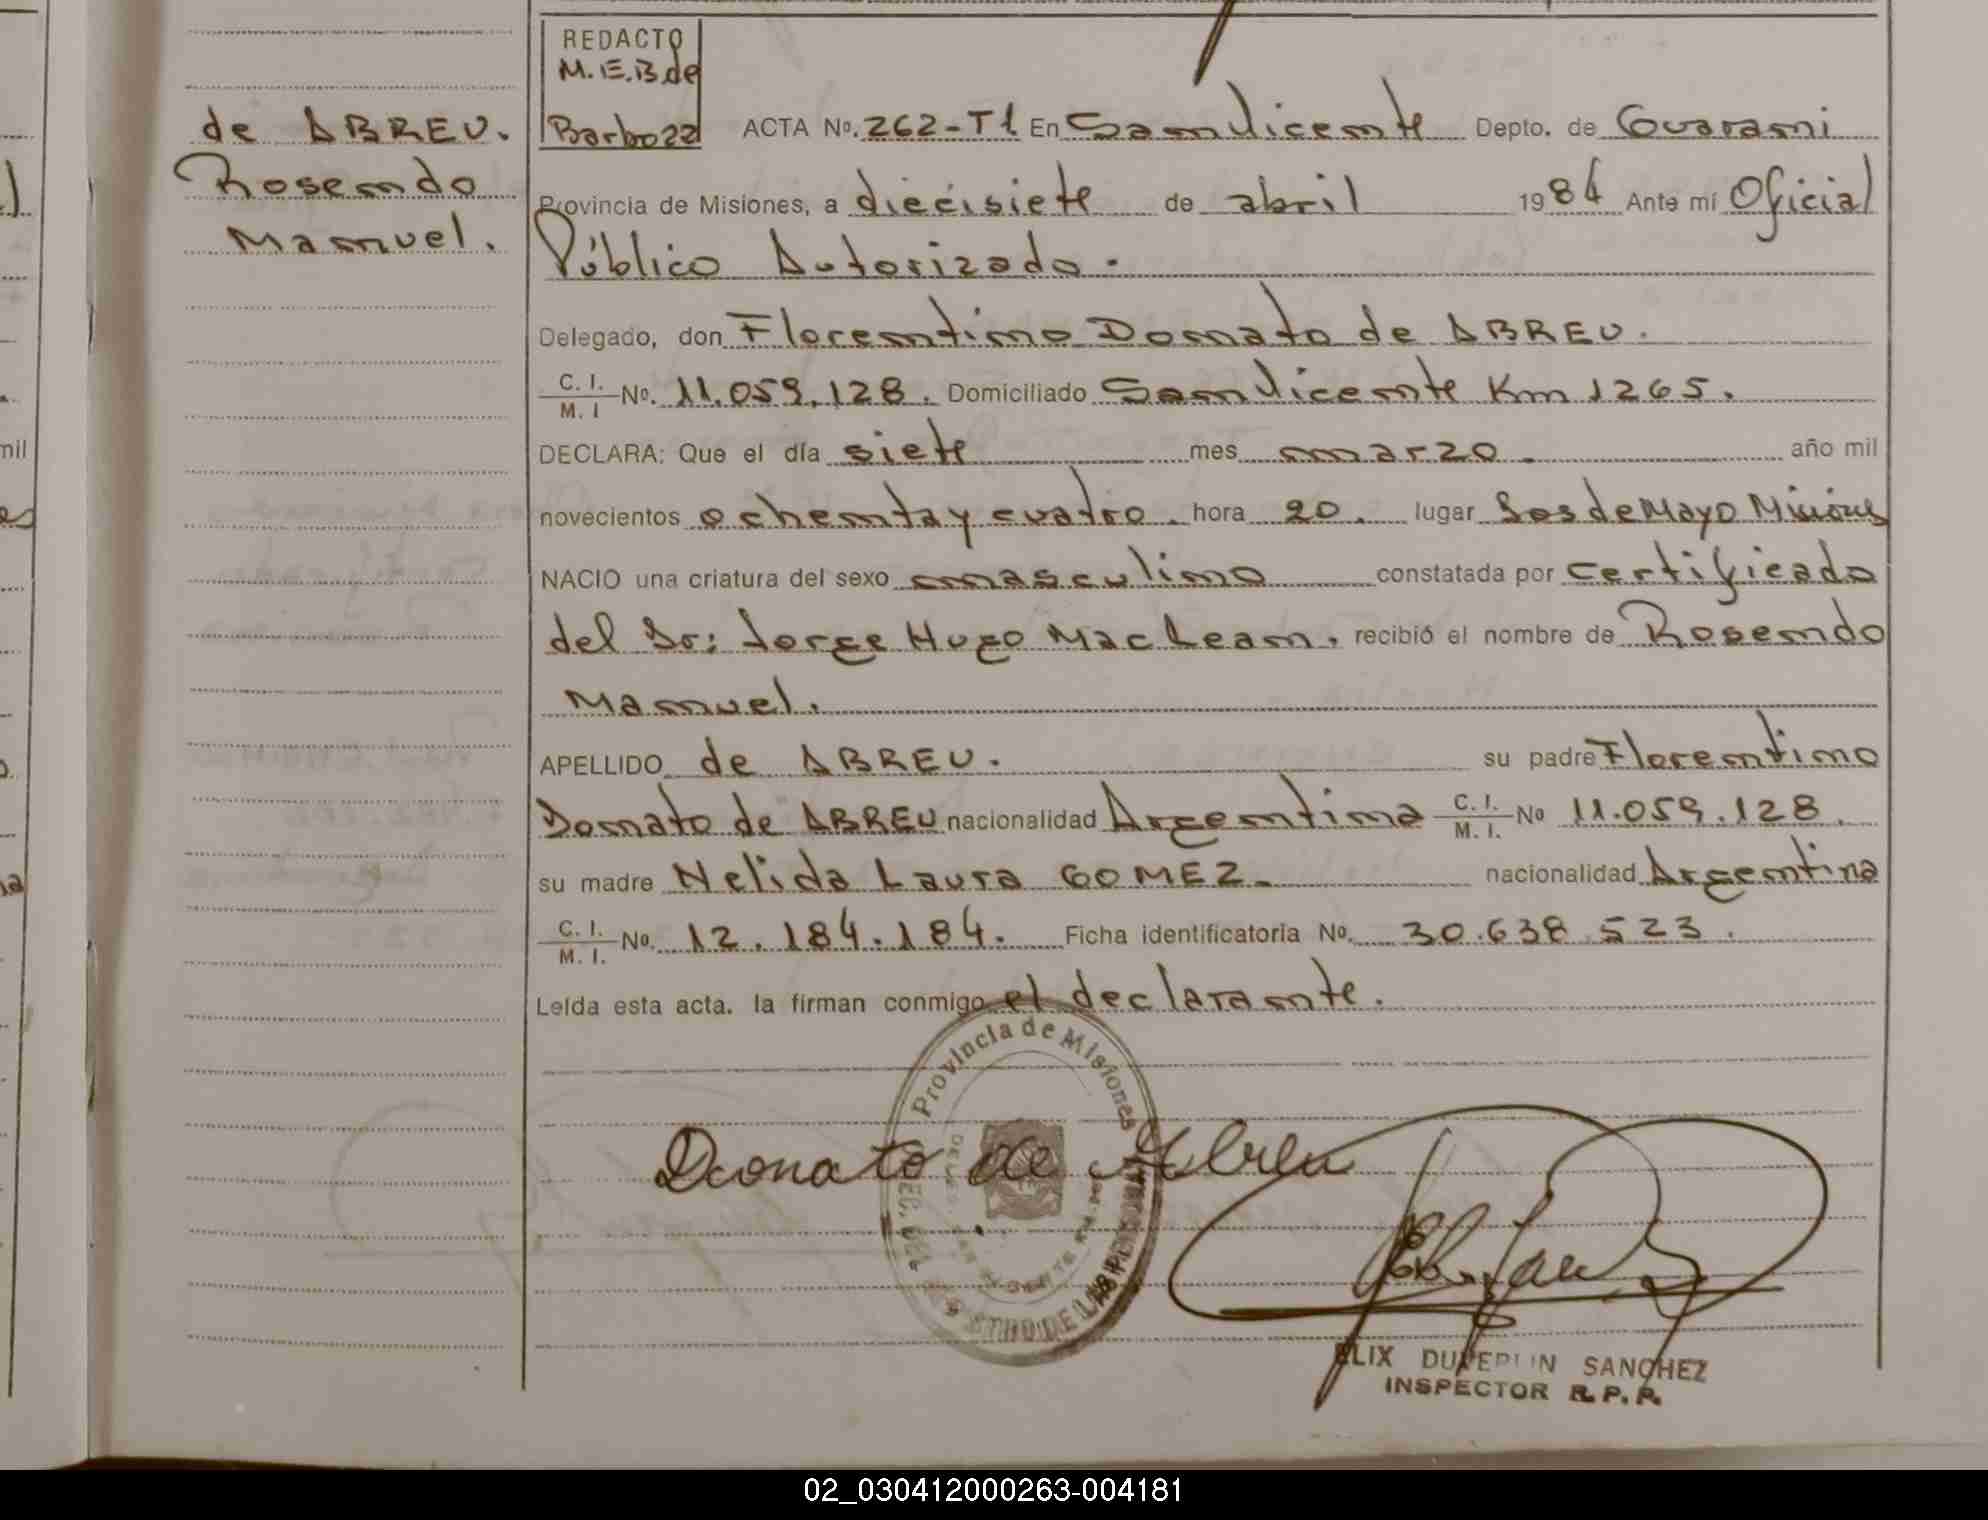 de ABREU.
Rosendo
Manuel.
REDACTO
M.E.B.de
Barboza
ACTA No. 262-T1 En San Vicente Depto. de Guarani
Provincia de Misiones, a diecisiete de abril 1984 Ante mí Oficial
Público Autorizado.
Delegado, don Florentino Donato de ABREU.
C. I.
M. I No. 11.059.128. Domiciliado San Vicente Km 1265.
DECLARA: Que el día siete mes marzo. año mil
novecientos ochenta y cuatro. hora 20. lugar 2 os de Mayo Misiones
NACIO una criatura del sexo masculino constatada por certificado
del Dr: Jorge Hugo Mac Lean. recibió el nombre de Rosendo
Manuel.
APELLIDO de ABREU. su padre Florentino
Donato de ABREU nacionalidad Argentina C. I. M. I. No 11.059.128.
su madre Nelida Laura GOMEZ. nacionalidad Argentina
C. I.
M. I. No. 12.184.184. Ficha identificatoria No. 30.638.523.
Leída esta acta. la firman conmigo el declarante.
Provincia de Misiones
Donato de Abreu
ELIX DUPERLIN SANCHEZ
INSPECTOR R.P.P.
mil
02_030412000263-004181